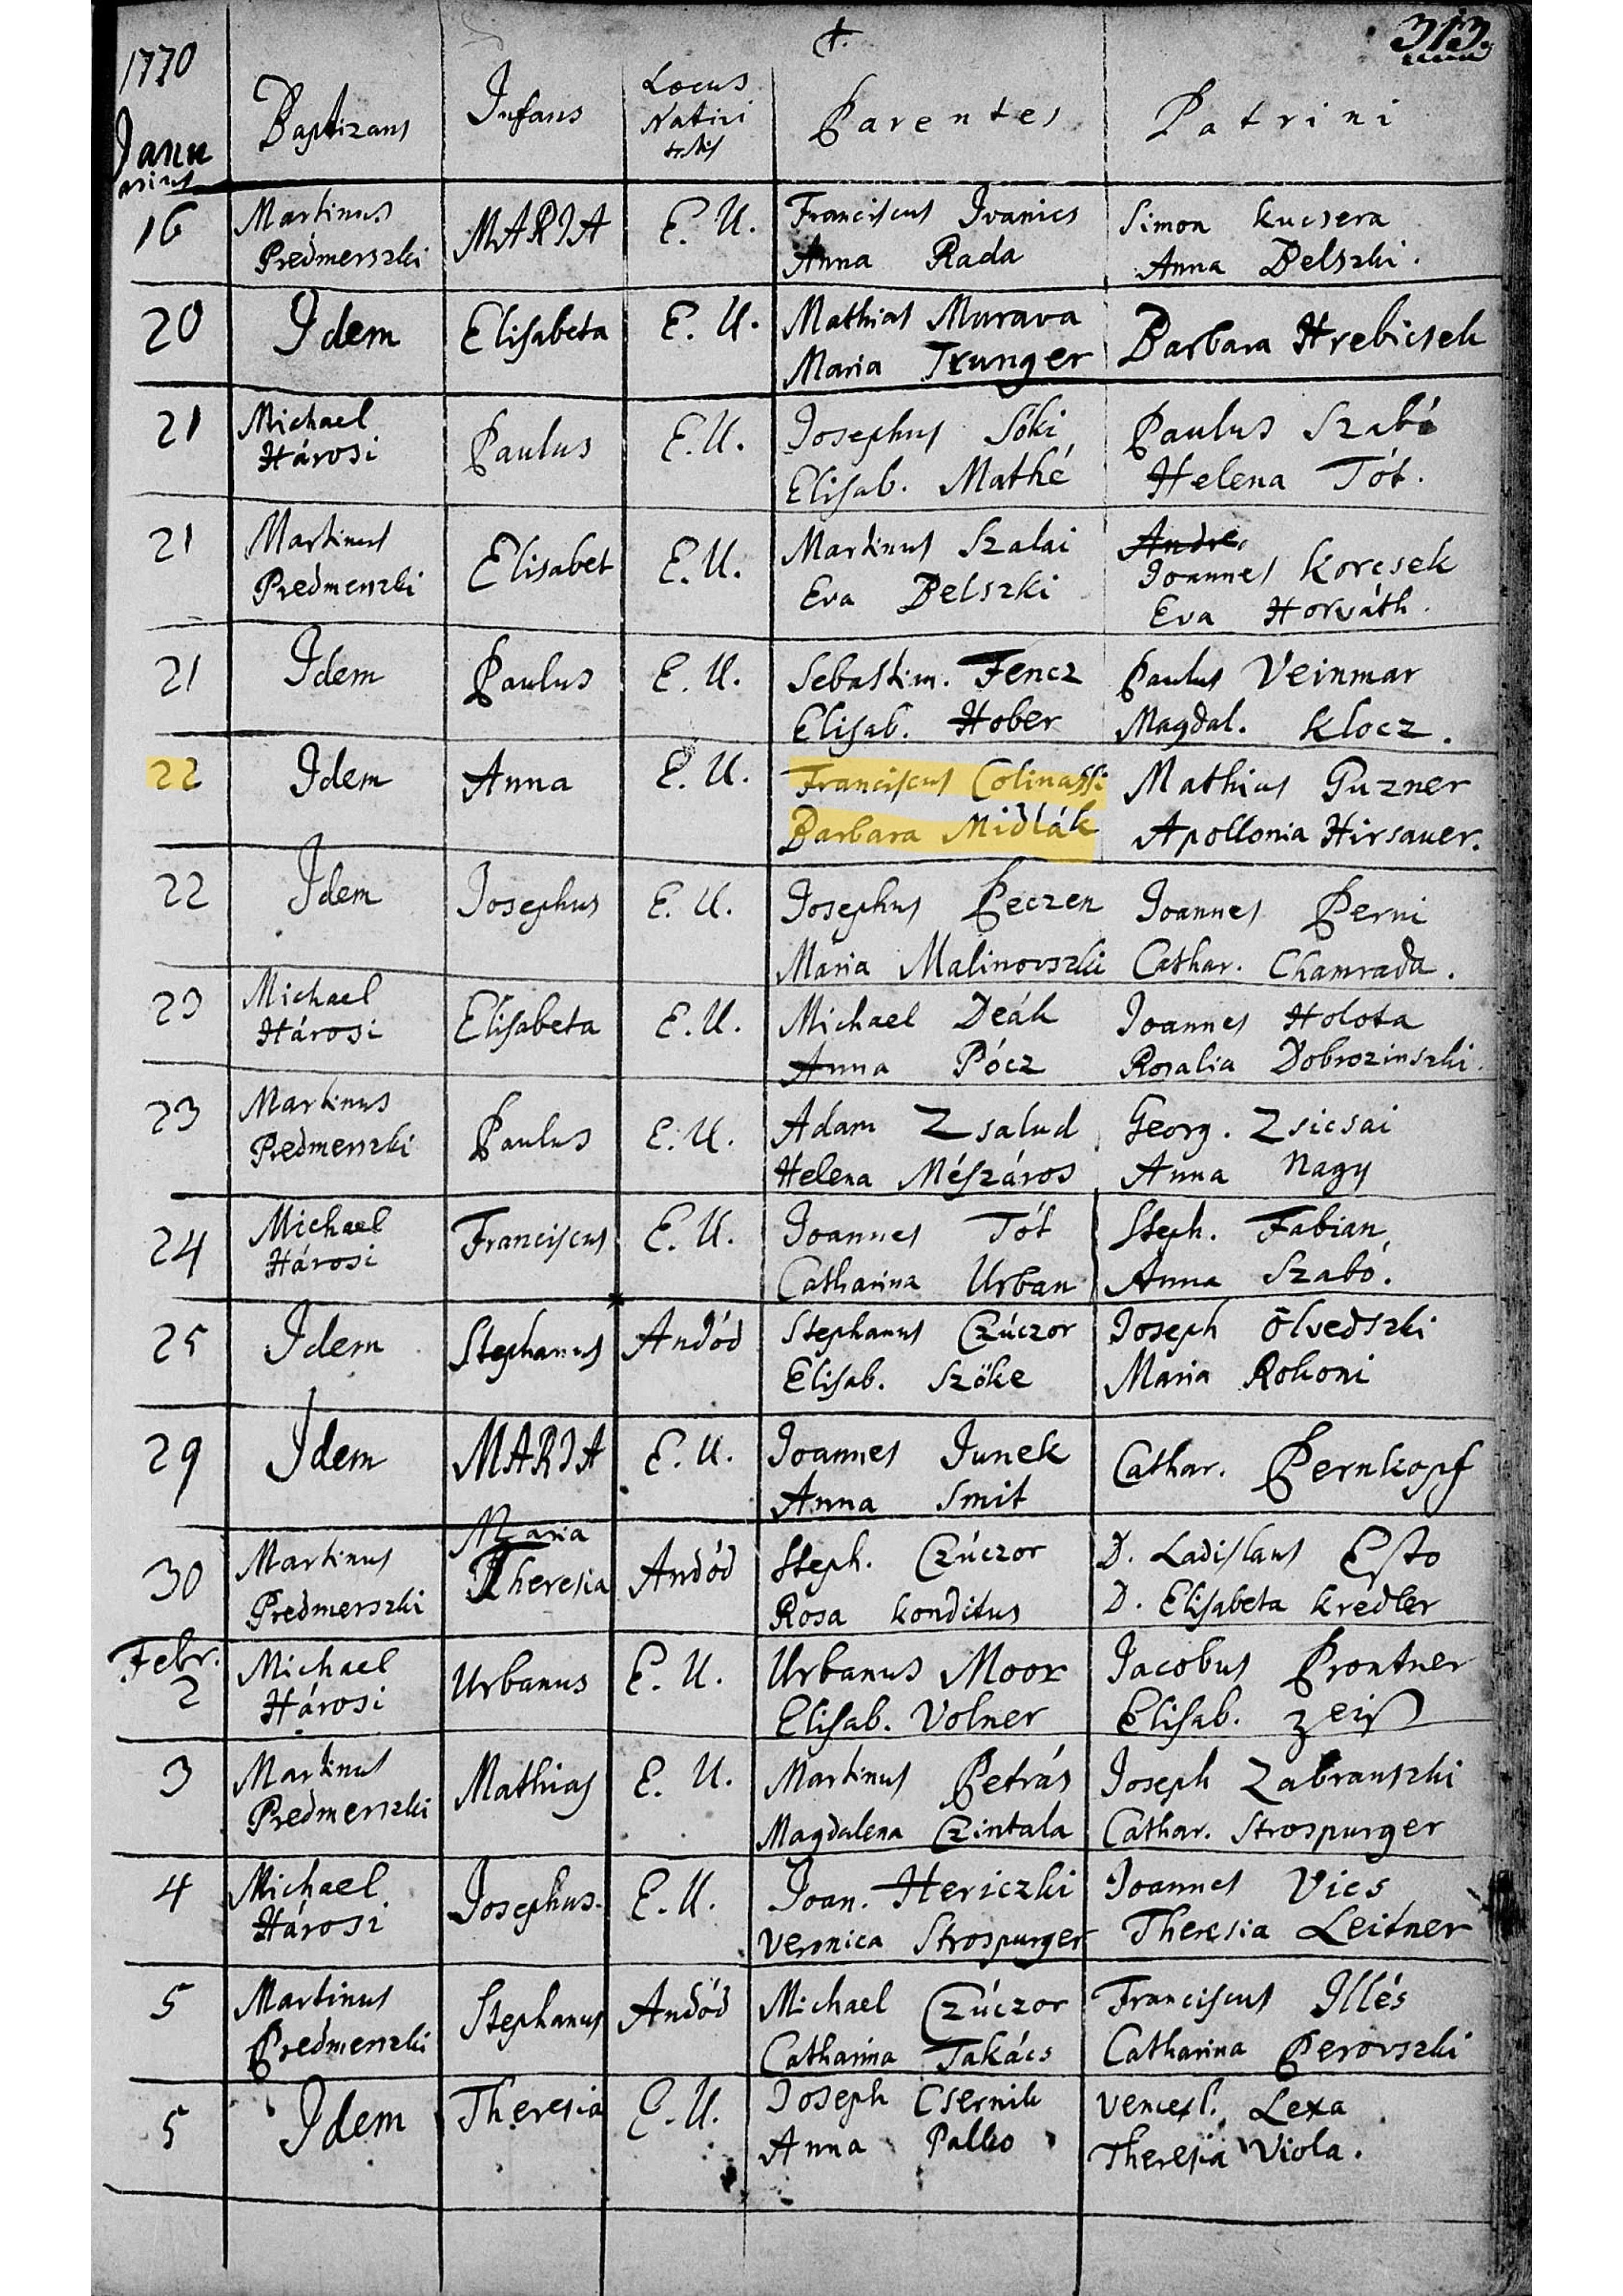 313.
1770
Janu
arius
Baptizans
Infans
Locus
Nativi
tatis
Parentes
Patrini
16
Martinus
Predmerszki
MARIA
E. U.
Franciscus Ivanics
Anna Rada
Simon Kucsera
Anna Belszki.
20
Idem
Elisabeta
E. U.
Mathias Murava
Maria Trunger
Barbara Hrebicsek
21
Michael
Hárosi
Paulus
E. U.
Josephus Sóki
Elisab. Mathé
Paulus Szabó
Helena Tót.
21
Martinus
Predmerszki
Elisabet
E. U.
Martinus Szalai
Eva Belszki
Andre
Joannes Korcsek
Eva Horváth.
21
Idem
Paulus
E. U.
Sebastian. Fencz
Elisab. Hober
Paulus Veinmar
Magdal. Klocz.
22
Idem
Anna
E. U.
Franciscus Colinassi
Barbara Midlák
Mathias Guzner
Apollonia Hirsauer.
22
Idem
Josephus
E. U.
Josephus Peczen
Maria Malinovszki
Joannes Perni
Cathar. Chamrada.
23
Michael
Hárosi
Elisabeta
E. U.
Michael Deák
Anna Pócz
Joannes Holota
Rosalia Dobrozinszki.
23
Martinus
Predmerszki
Paulus
E. U.
Adam Zsalud
Helena Mészáros
Georg. Zsicsai
Anna Nagy
24
Michael
Hárosi
Franciscus
E. U.
Joannes Tót
Catharina Urban
Steph. Fabian
Anna Szabó.
25
Idem
Stephanus
Andód
Stephanus Czúczor
Elisab. Szőke
Joseph Ölvedszki
Maria Rokoni
29
Idem
MARIA
E. U.
Joannes Junek
Anna Smit
Cathar. Pernkopf
30
Martinus
Predmerszki
Maria
Theresia
Andód
Steph. Czúczor
Rosa Konditus
D. Ladislaus Esto
D. Elisabeta Kredler
Febr.
2
Michael
Hárosi
Urbanus
E. U.
Urbanus Moor
Elisab. Volner
Jacobus Prontner
Elisab. Zeiß
3
Martinus
Predmerszki
Mathias
E. U.
Martinus Petrás
Magdalena Czintala
Joseph Zabranszki
Cathar. Strospurger
4
Michael
Hárosi
Josephus.
E. U.
Joan. Hericzki
Veronica Strospurger
Joannes Vics
Theresia Leitner
5
Martinus
Predmerszki
Stephanus
Andód
Michael Czúczor
Catharina Takács
Franciscus Illés
Catharina Perovszki
5
Idem
Theresia
E. U.
Joseph Csernik
Anna Palko
Vencesl. Lexa
Theresia Viola.